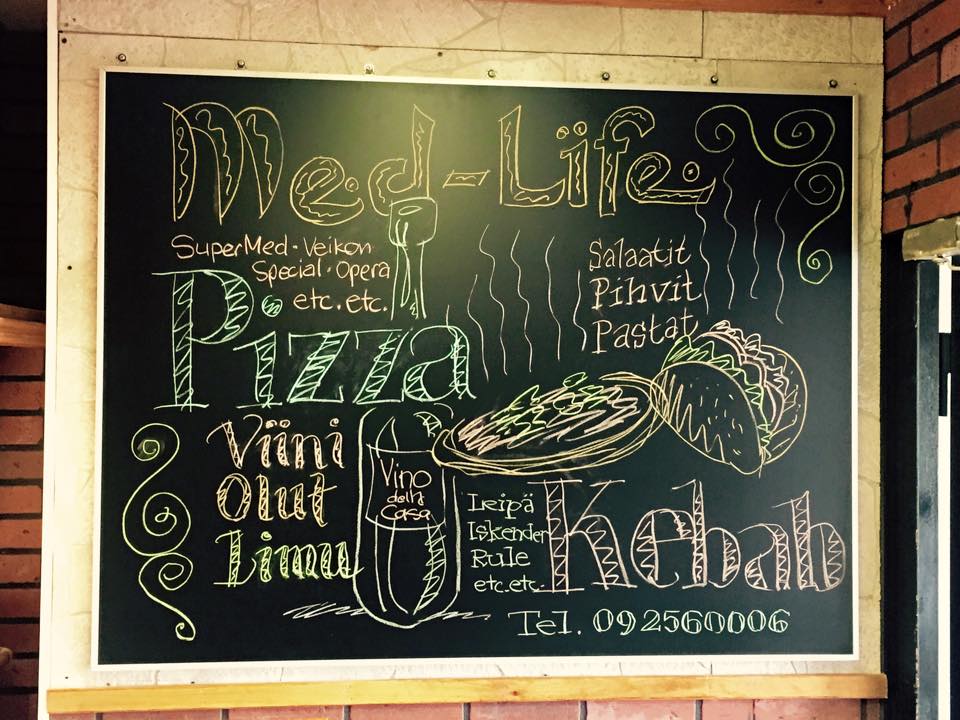 Med-Life.
SuperMed · Veikon
Special · Opera
etc. etc.
Pizza
Salaatit
Pihvit
Pastat
Viini
Olut
Limu
Vino
della
Casa
Leipä
Iskender
Rule
etc.etc.
Kebab
Tel. 09 2560006